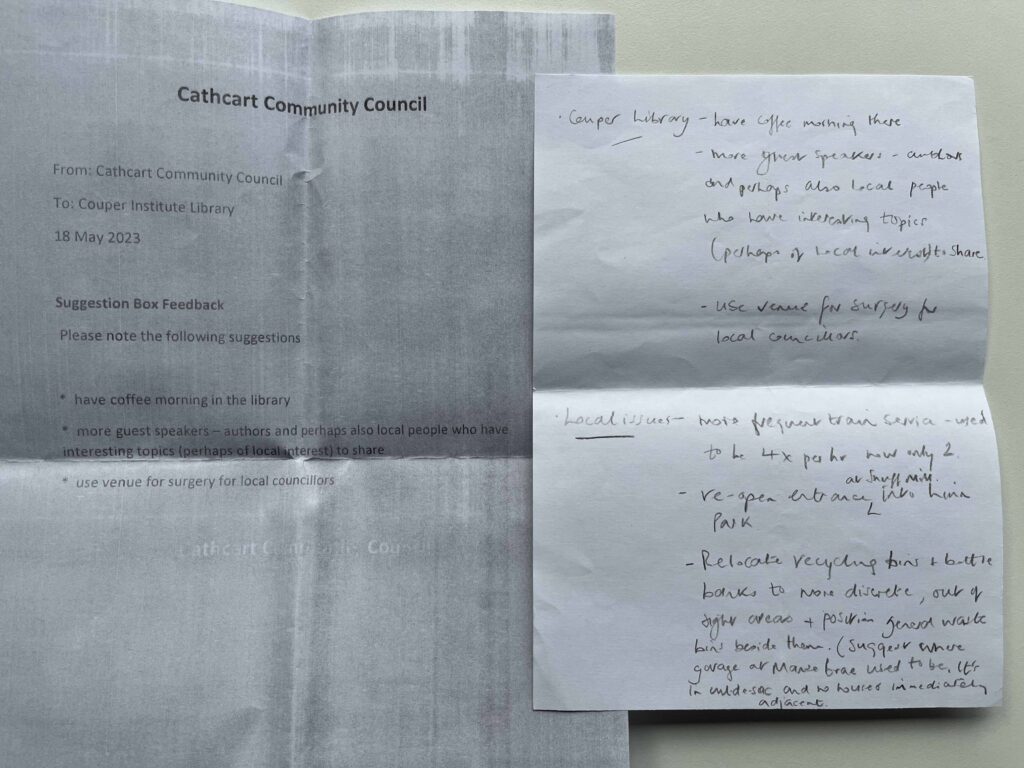 Cathcart Community Council
From: Cathcart Community Council
To: Couper Institute Library
18 May 2023
Suggestion Box Feedback
Please note the following suggestions
* have coffee morning in the library
* more guest speakers – authors and perhaps also local people who have
interesting topics (perhaps of local interest) to share
* use venue for surgery for local councillors
Cathcart Community Council
· Couper Library – have coffee morning there
- more guest speakers - authors
and perhaps also local people
who have interesting topics
(perhaps of local interest) to share
- use venue for surgery for
local councillors.
· Local issues – more frequent train service - used
to be 4x per hr now only 2.
at Snuff Mill.
- re-open entrance into Linn
Park
- Relocate recycling bins + bottle
banks to more discrete, out of
sight areas + position general waste
bins beside them. (Suggest where
garage at Manse Brae used to be. It's
in cul-de-sac and no houses immediately
adjacent.